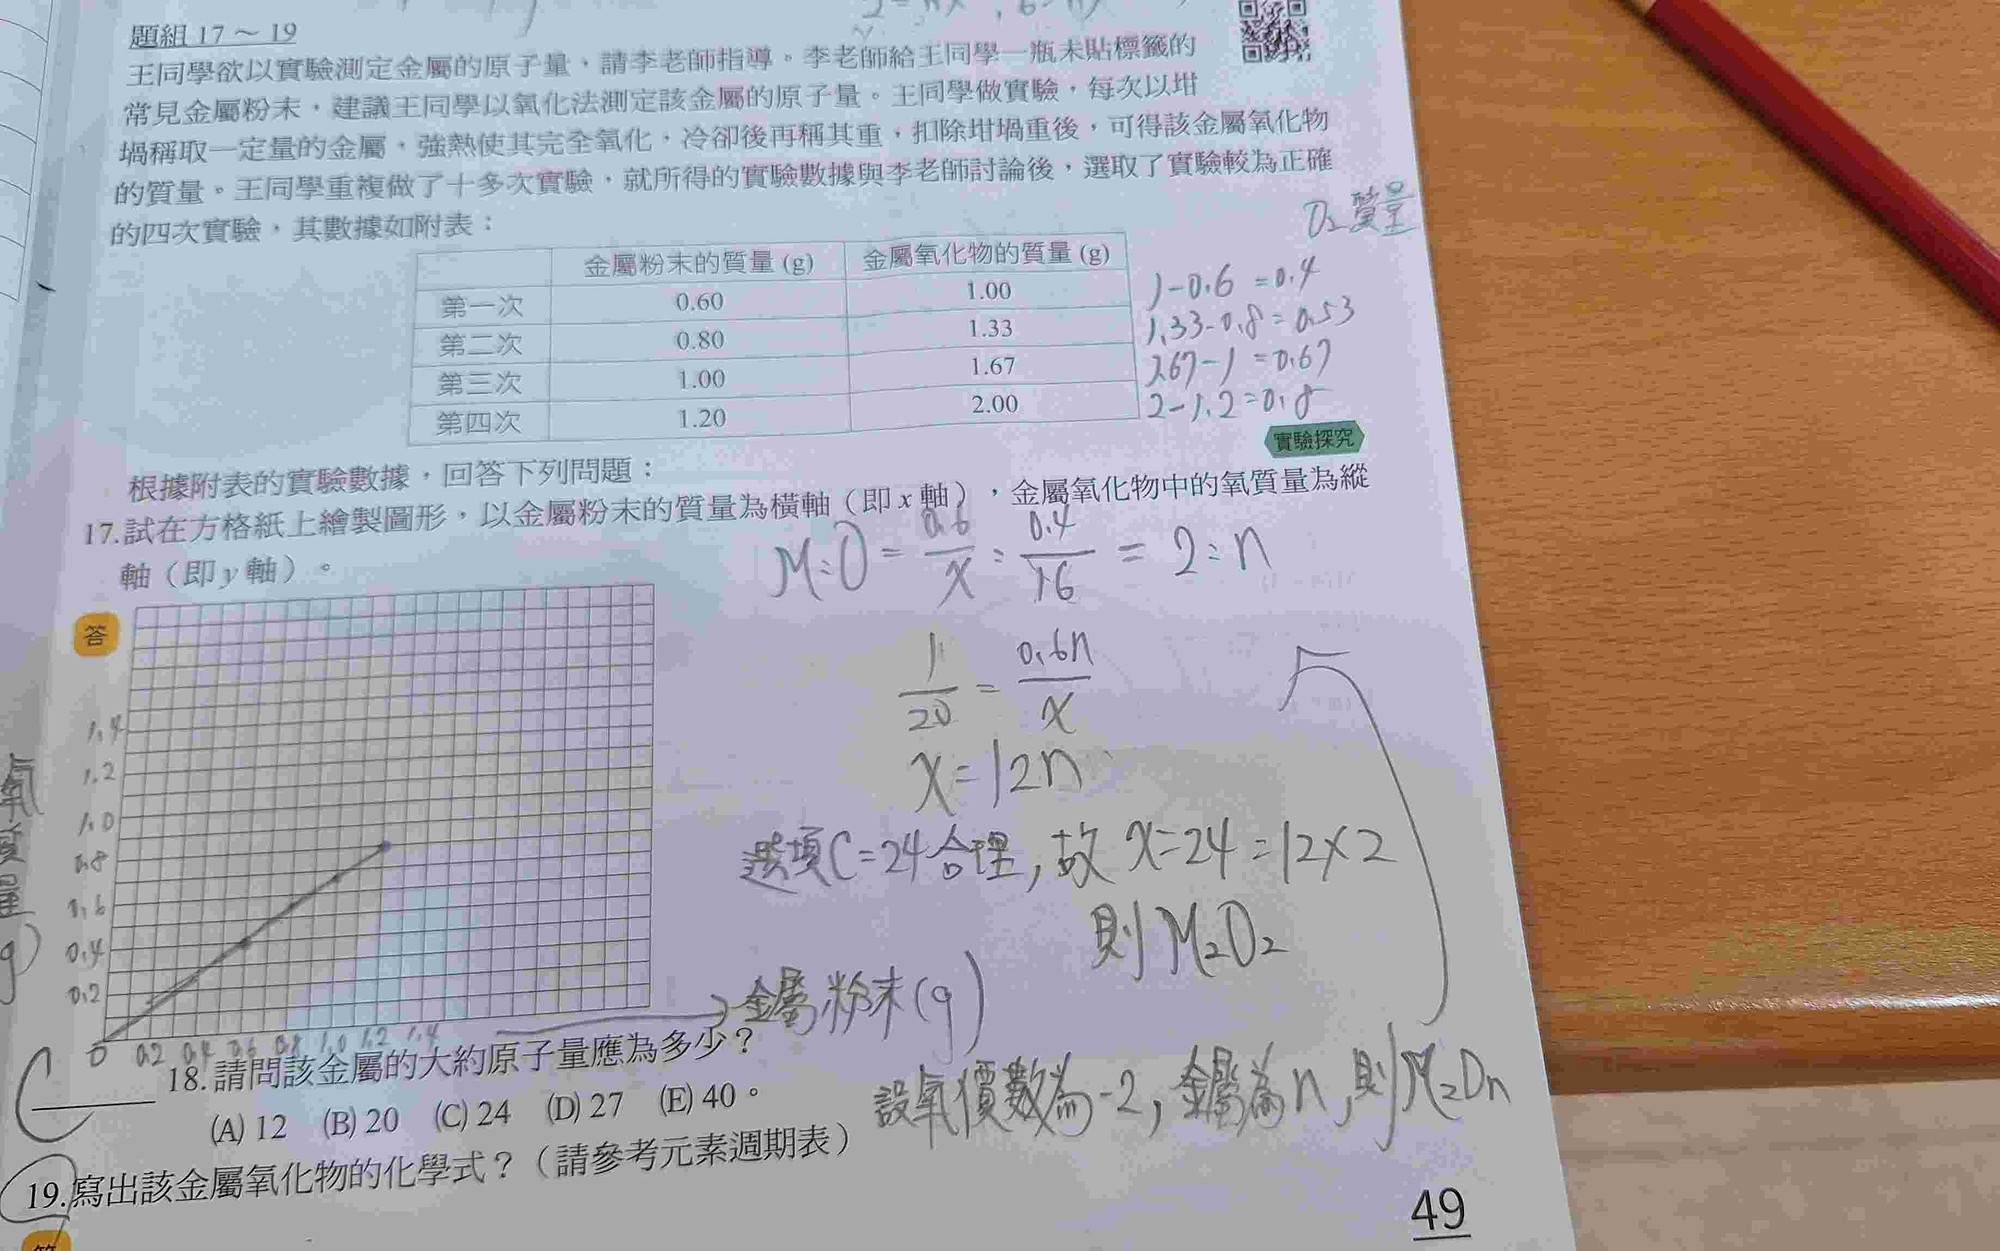 題組 17 ~ 19
王同學欲以實驗測定金屬的原子量，請李老師指導。李老師給王同學一瓶未貼標籤的
常見金屬粉末，建議王同學以氧化法測定該金屬的原子量。王同學做實驗，每次以坩
堝稱取一定量的金屬，強熱使其完全氧化，冷卻後再稱其重，扣除坩堝重後，可得該金屬氧化物
的質量。王同學重複做了十多次實驗，就所得的實驗數據與李老師討論後，選取了實驗較為正確
的四次實驗，其數據如附表：
O₂質量
金屬粉末的質量 (g) 金屬氧化物的質量 (g)
第一次 0.60 1.00 1-0.6=0.4
第二次 0.80 1.33 1.33-0.8=0.53
第三次 1.00 1.67 1.67-1=0.67
第四次 1.20 2.00 2-1.2=0.8
實驗探究
根據附表的實驗數據，回答下列問題：
17.試在方格紙上繪製圖形，以金屬粉末的質量為橫軸（即 x 軸），金屬氧化物中的氧質量為縱
軸（即 y 軸）。
M:O = 0.6/x : 0.4/16 = 2:n
答
1/20 = 0.6n/x
x=12n
選項C=24合理，故 x=24=12×2
則M₂O₂
1.4
1.2
1.0
0.8
0.6
0.4
0.2
氧質量(g)
0 0.2 0.4 0.6 0.8 1.0 1.2 1.4
金屬粉末(g)
C
18.請問該金屬的大約原子量應為多少？
(A) 12 (B) 20 (C) 24 (D) 27 (E) 40。
設氧價數為-2，金屬為n，則M₂On
19.寫出該金屬氧化物的化學式？（請參考元素週期表）
答
49